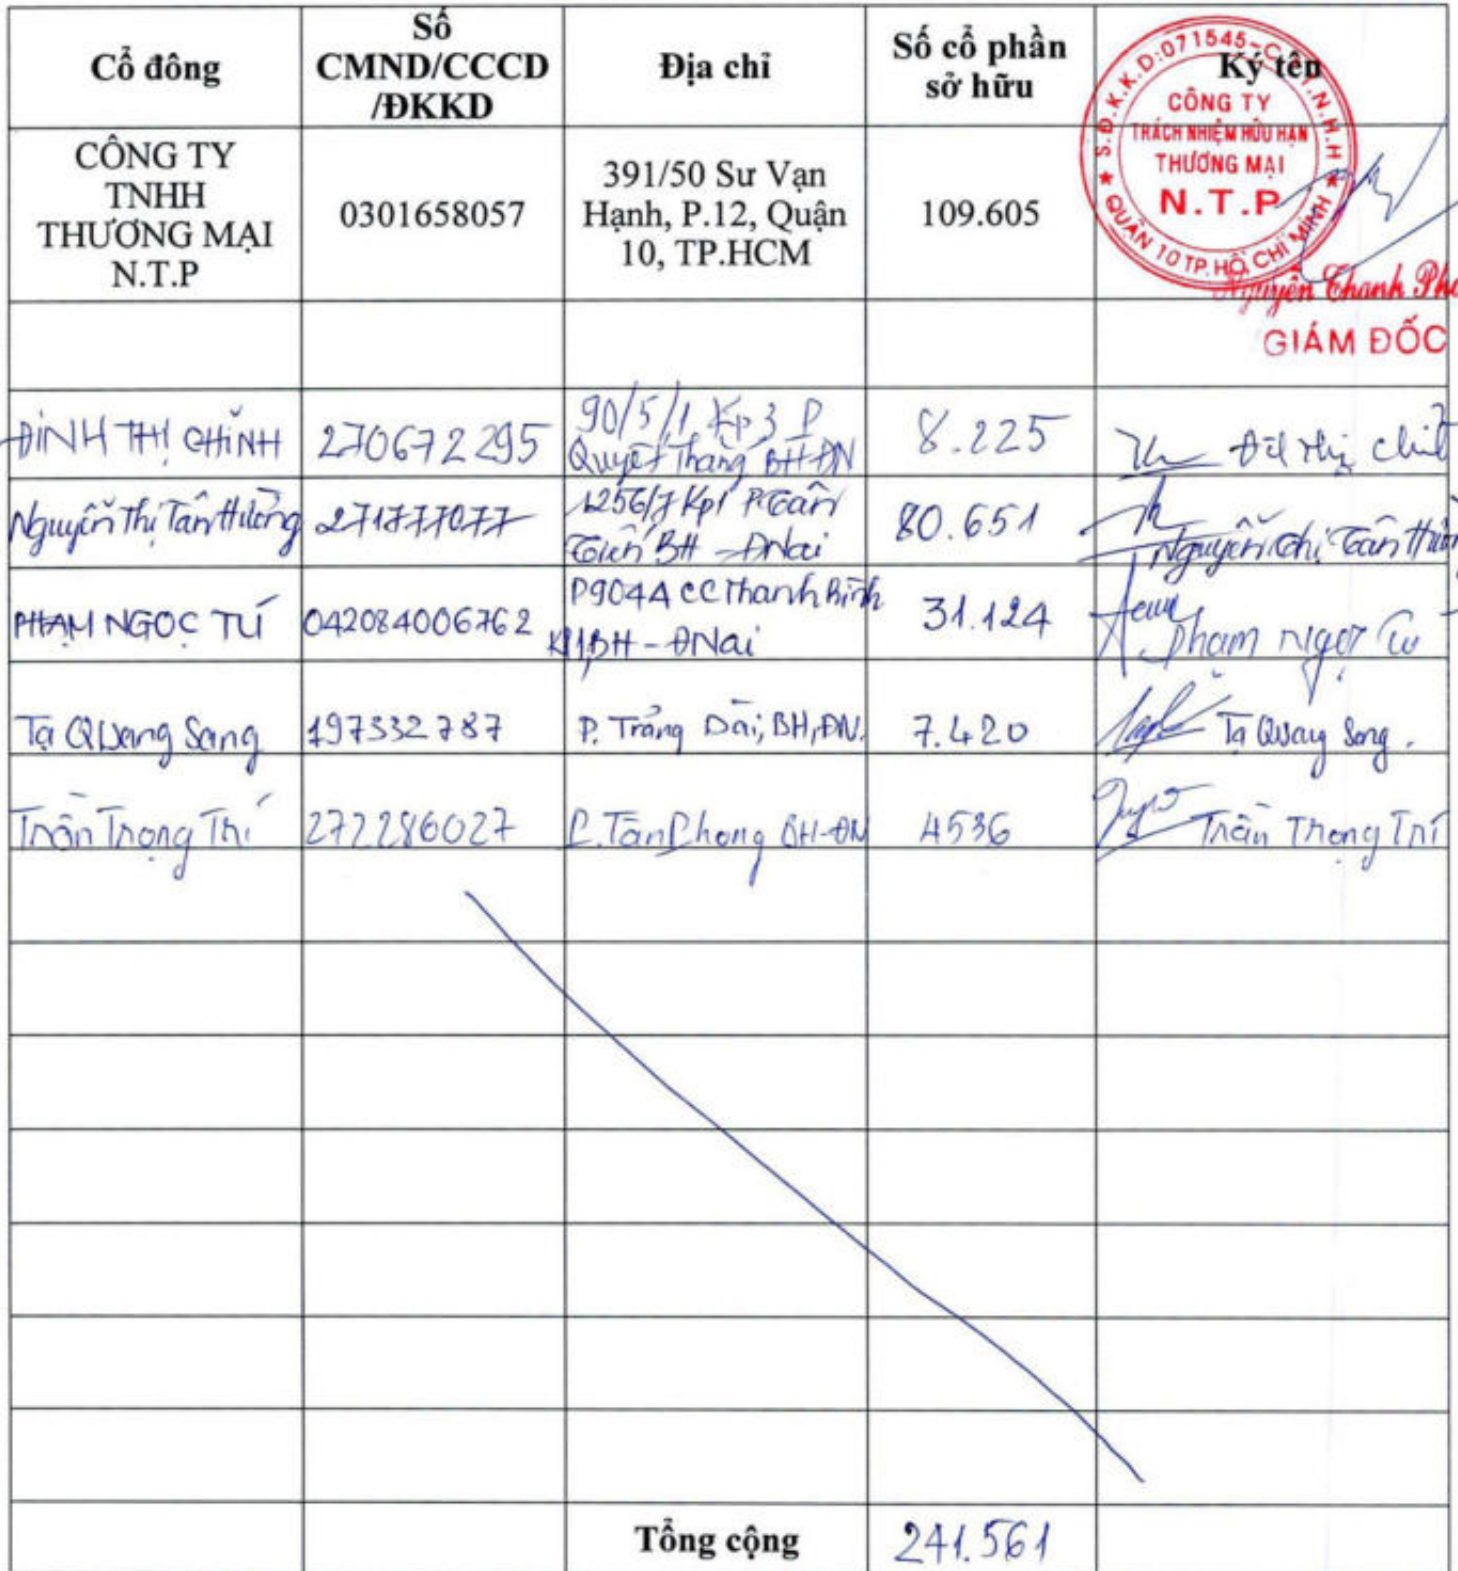 Cổ đông
Số
CMND/CCCD
/ĐKKD
Địa chỉ
Số cổ phần
sở hữu
Ký tên
CÔNG TY
TNHH
THƯƠNG MẠI
N.T.P
0301658057
391/50 Sư Vạn
Hạnh, P.12, Quận
10, TP.HCM
109.605
S.Đ.K.K.D:071545-C.T.T.N.H.H
CÔNG TY
TRÁCH NHIỆM HỮU HẠN
THƯƠNG MẠI
N.T.P
QUẬN 10 TP. HỒ CHÍ MINH
Nguyễn Thanh
GIÁM ĐỐC
ĐINH THỊ CHĨNH
270672295
90/5/1, Kp3 P
Quyết Thắng BH-ĐN
8.225
Nguyễn Thị Tân Hường
271777077
1256/7 Kp1 P.Tân
Tiến BH - ĐNai
80.651
Nguyễn Thị Tân
PHẠM NGỌC TÚ
042084006762
P904A CC Thanh Bình
BH - ĐNai
31.124
Phạm Ngọc Tú
Tạ Quang Sang
197332787
P. Trảng Dài, BH, ĐN.
7.420
Tạ Quang Sang.
Trần Trọng Trí
272286027
P. Tân Phong BH-ĐN
4536
Trần Trọng Trí
Tổng cộng
241.561